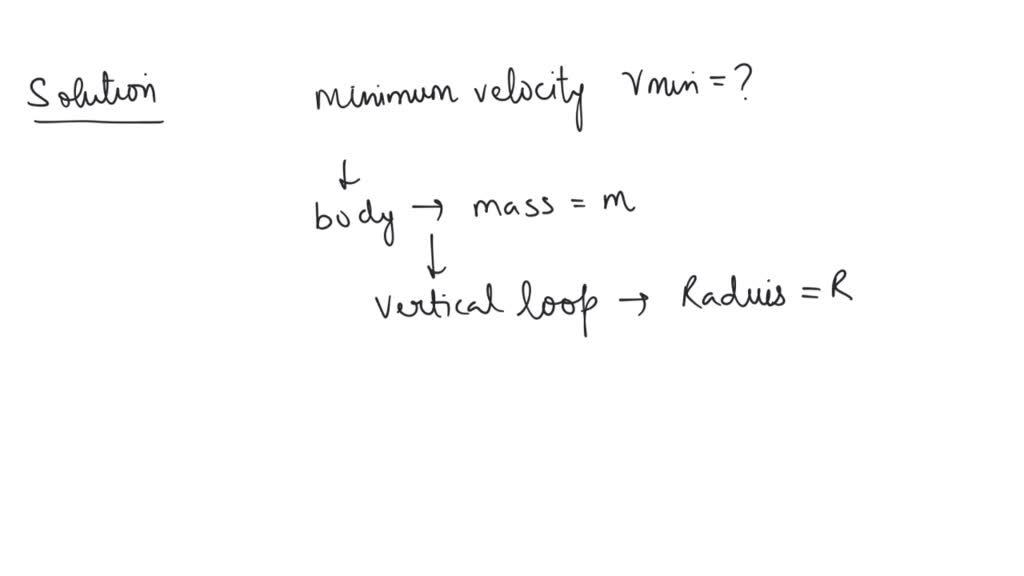 Solution minimum velocity vmin = ?
↓
body → mass = m
↓
vertical loop → Raduis = R